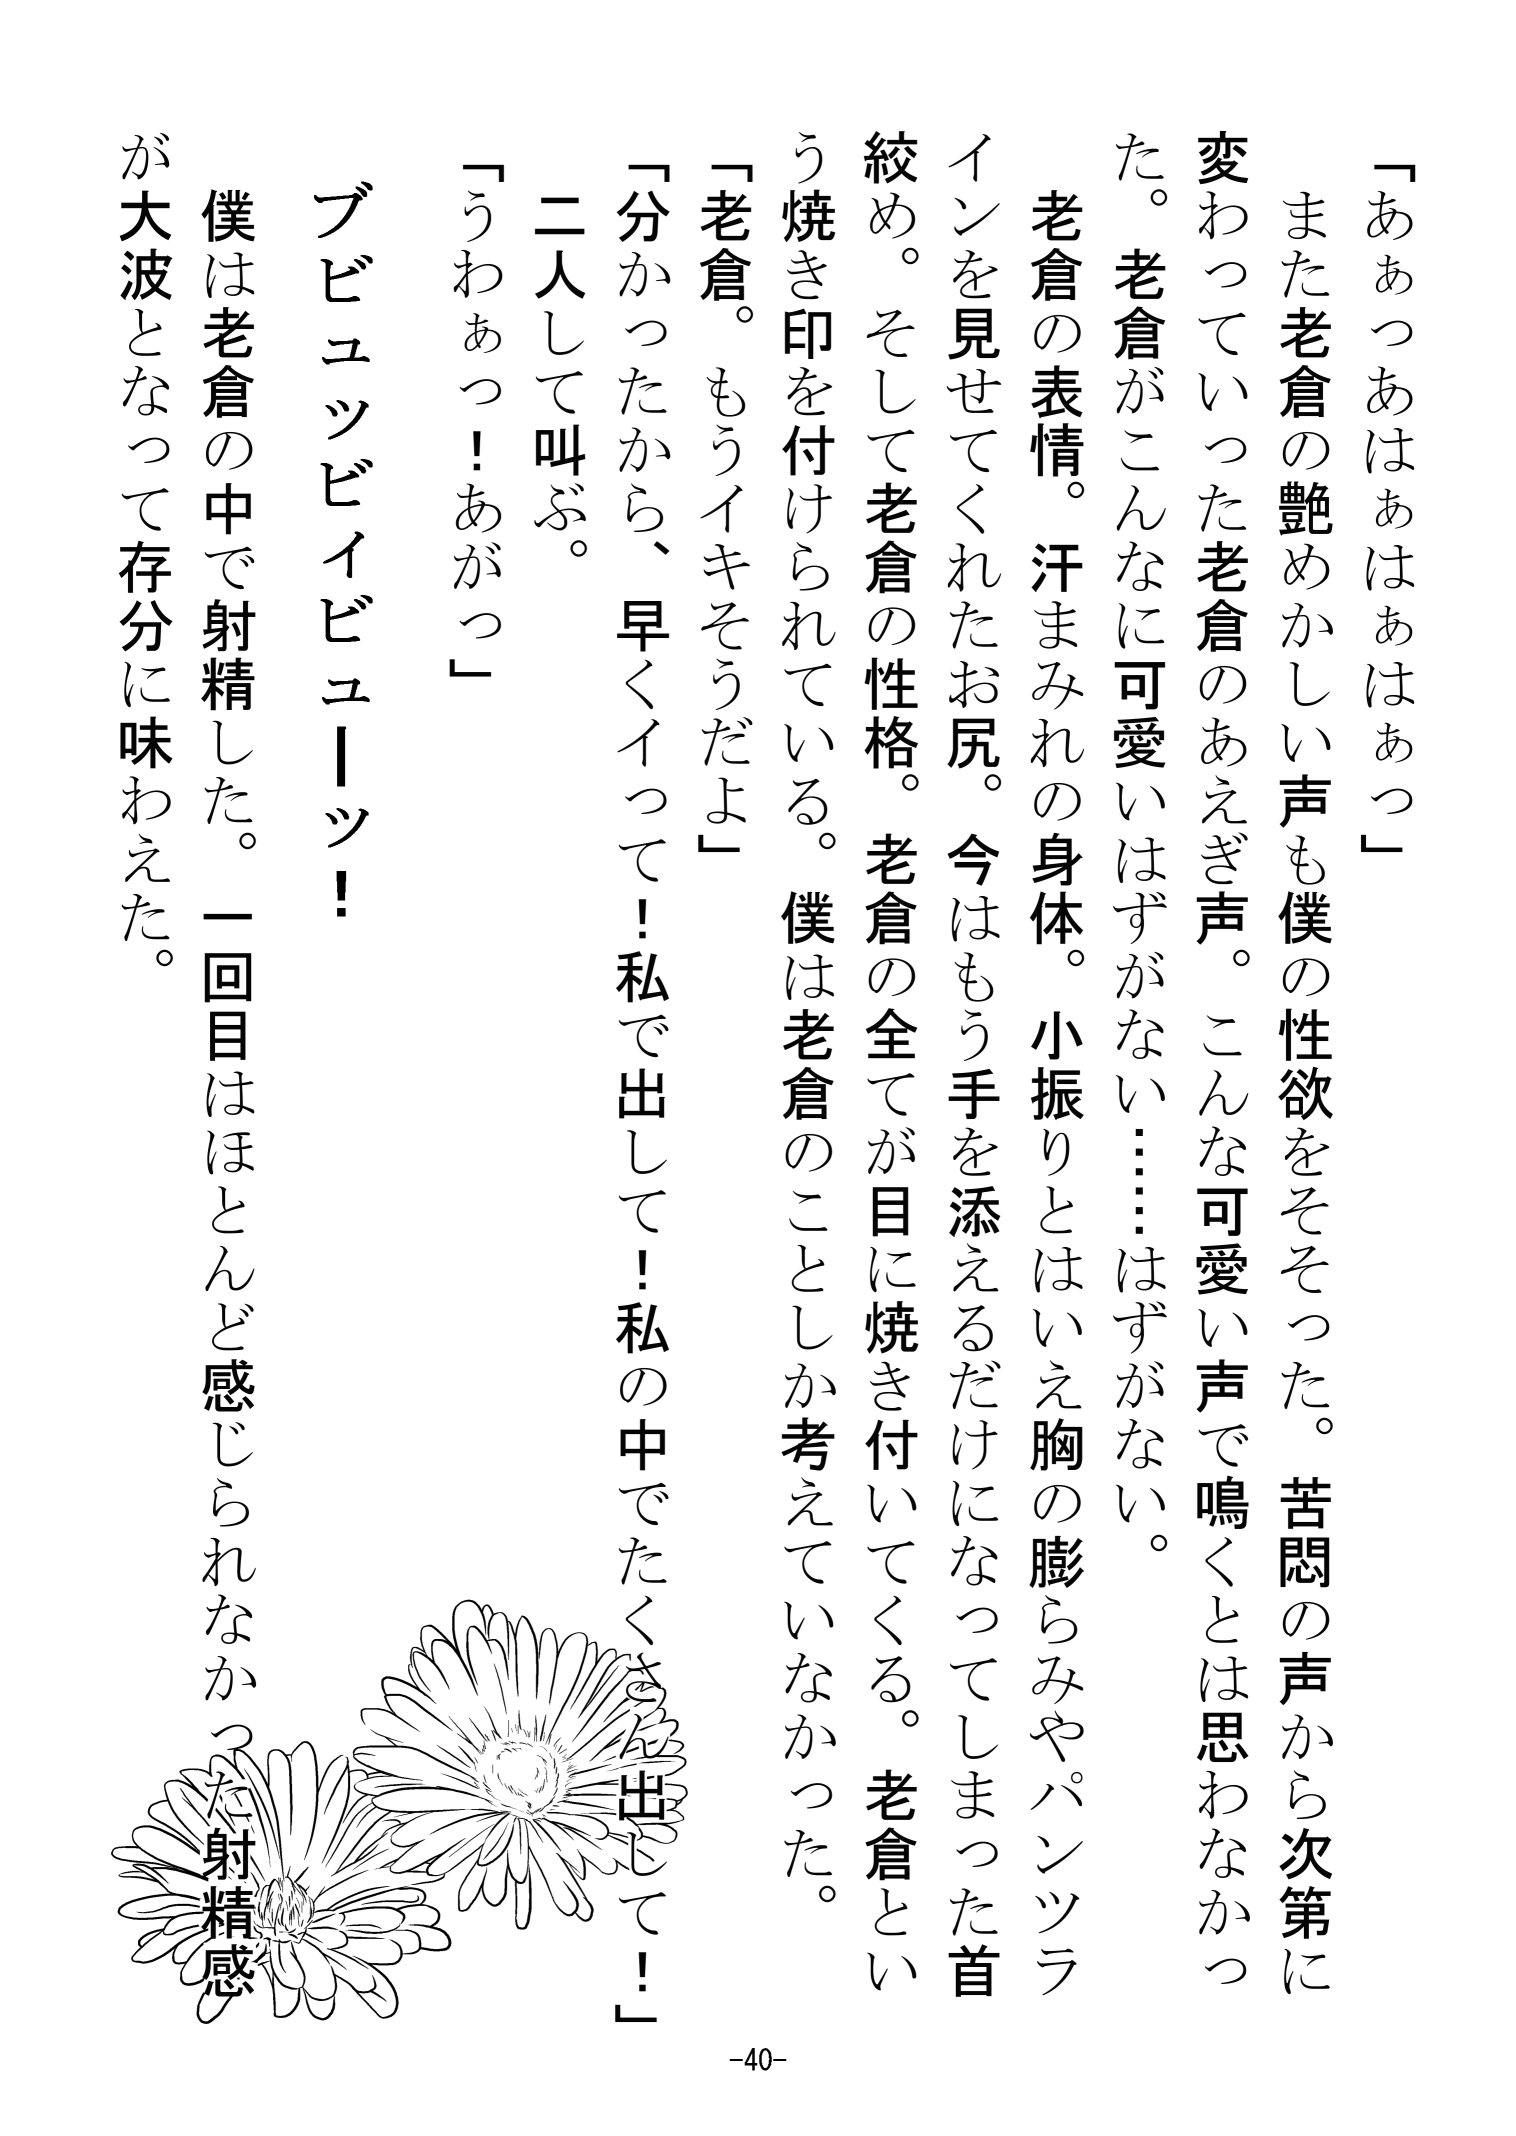 「あぁっあはぁはぁはぁっ」
　また老倉の艶めかしい声も僕の性欲をそそった。苦悶の声から次第に
変わっていった老倉のあえぎ声。こんな可愛い声で鳴くとは思わなかっ
た。老倉がこんなに可愛いはずがない……はずがない。
　老倉の表情。汗まみれの身体。小振りとはいえ胸の膨らみやパンツラ
インを見せてくれたお尻。今はもう手を添えるだけになってしまった首
絞め。そして老倉の性格。老倉の全てが目に焼き付いてくる。老倉とい
う焼き印を付けられている。僕は老倉のことしか考えていなかった。
「老倉。もうイキそうだよ」
「分かったから、早くイって！私で出して！私の中でたくさん出して！」
　二人して叫ぶ。
「うわぁっ！あがっ」
ブビュッビィビューッ！
　僕は老倉の中で射精した。一回目はほとんど感じられなかった射精感
が大波となって存分に味わえた。
-40-